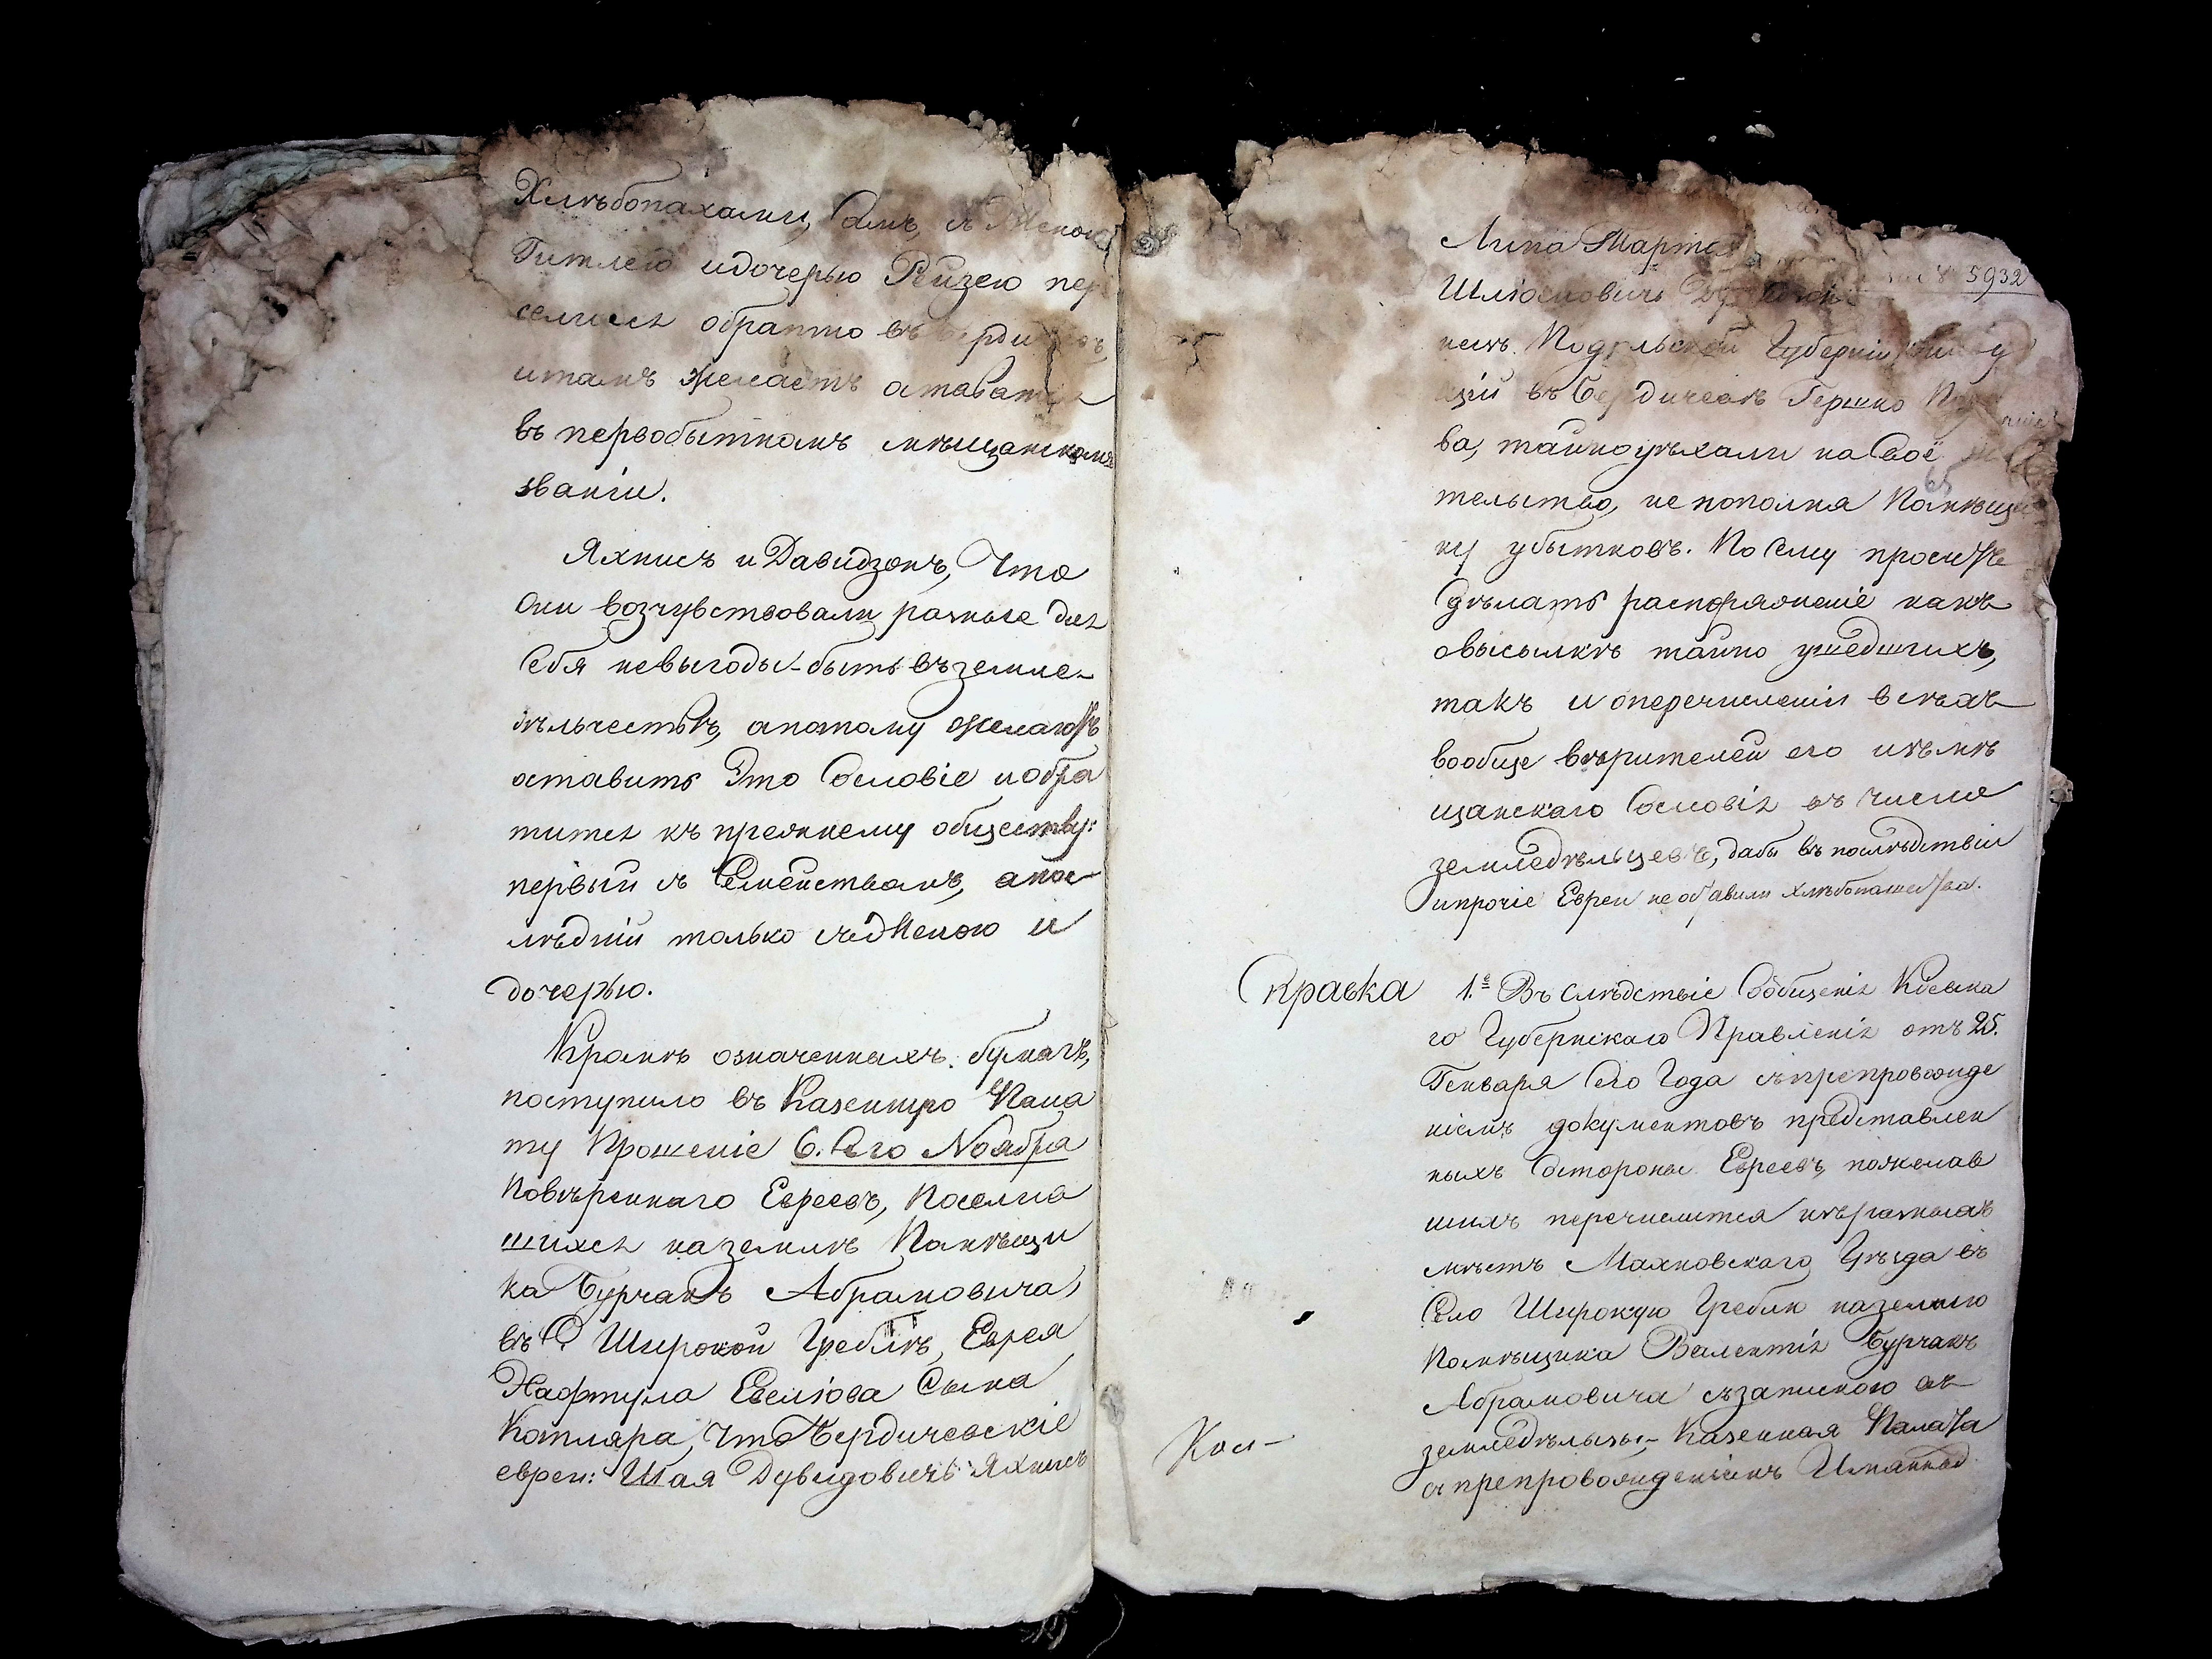 Хлѣбопахами, Самъ, съ Женою
Гитлею идочерью Рейзею пер
селился обратно въ Бердичевъ,
итамъ желаетъ оставатся
въ первобытномъ мѣщанскомъ
званіи.
Яхнисъ и Давидзонъ, Что
Они возчувствовали разные для
Себя невыгоды быть въ земле-
дѣльчествѣ, апотому желаютъ
оставить Это Сословіе иобра
тится къ прежнему обществу:
первый съ Семействамъ, апос
лѣдній только съ Женою и
дочерью.
Кромѣ означенныхъ бумагъ,
поступило въ Казенную Пала
ту Прошеніе 6. Сего Ноября
Повѣреннаго Евреевъ, Поселив
шихся на землѣ Помѣщи
ка Бурчакъ Абрамовича,
въ С. Широкой Греблѣ, Еврея
Нафтула Евелюва Сына
Котляра, Что Бердичевскіе
евреи: Шая Дувидовичъ Яхнисъ
5932
Липа Мартея
Шліомовичъ
Подольской Губерніи
щій въ Бердичевѣ Гершко
ва, тайноуѣхали на Своё
тельство, не пополня Помѣщи
ку убытковъ. По Сему проситъ
Сдѣлать распоряженіе какъ
овысылкѣ тайно ушедшихъ,
такъ и оперечисленіи всѣхъ
вообще вѣрителей его изъ мѣ
щанскаго Сословія въ число
земледѣльцевъ, дабы въ послѣдствіи
ипрочіе Евреи не оставили хлѣбопашества.
Справка 1.е Въ Слѣдствіе Сообщенія Кіевска
го Губернскаго Правленія отъ 25.
Генваря Сего Года съ препровожде
ніемъ документовъ представлен
ныхъ Состороны Евреевъ, пожелав
шихъ перечислится изъ разныхъ
мѣстъ Махновскаго Уѣзда въ
Село Широкую Греблю на землю
Помѣщика Валентія Бурчакъ
Абрамовича съ запискою въ
земледѣльцы, Казенная Палата
съ препровожденіемъ Имянной
Кол-